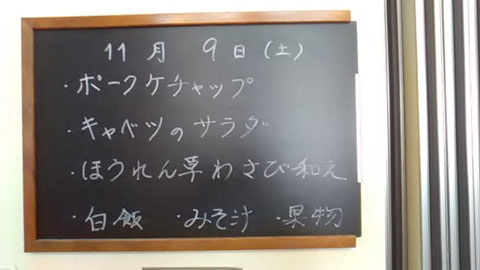 11月 9日(土)
・ポークケチャップ
・キャベツのサラダ
・ほうれん草わさび和え
・白飯 ・みそ汁 ・果物